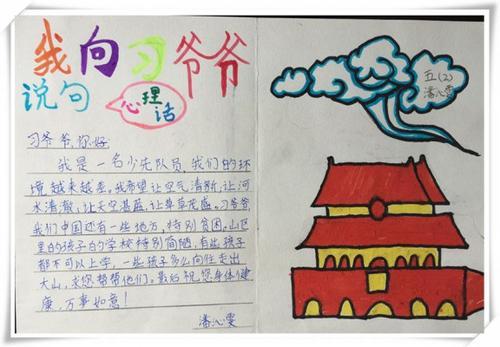 我向习爷爷
说句
心理话
五(2)
潘沁雯
习爷爷,你好:
我是一名少先队员,我们的环
境越来越差,我希望让空气清新,让河
水清澈,让天空湛蓝,让草草茂盛,习爷爷,
我们中国还有一些地方,特别贫困,山区
里的孩子的学校特别简陋,有些孩子
都不可以上学,一些孩子多么向往走出
大山,求您帮帮他们。最后祝您身体健
康,万事如意!
潘沁雯